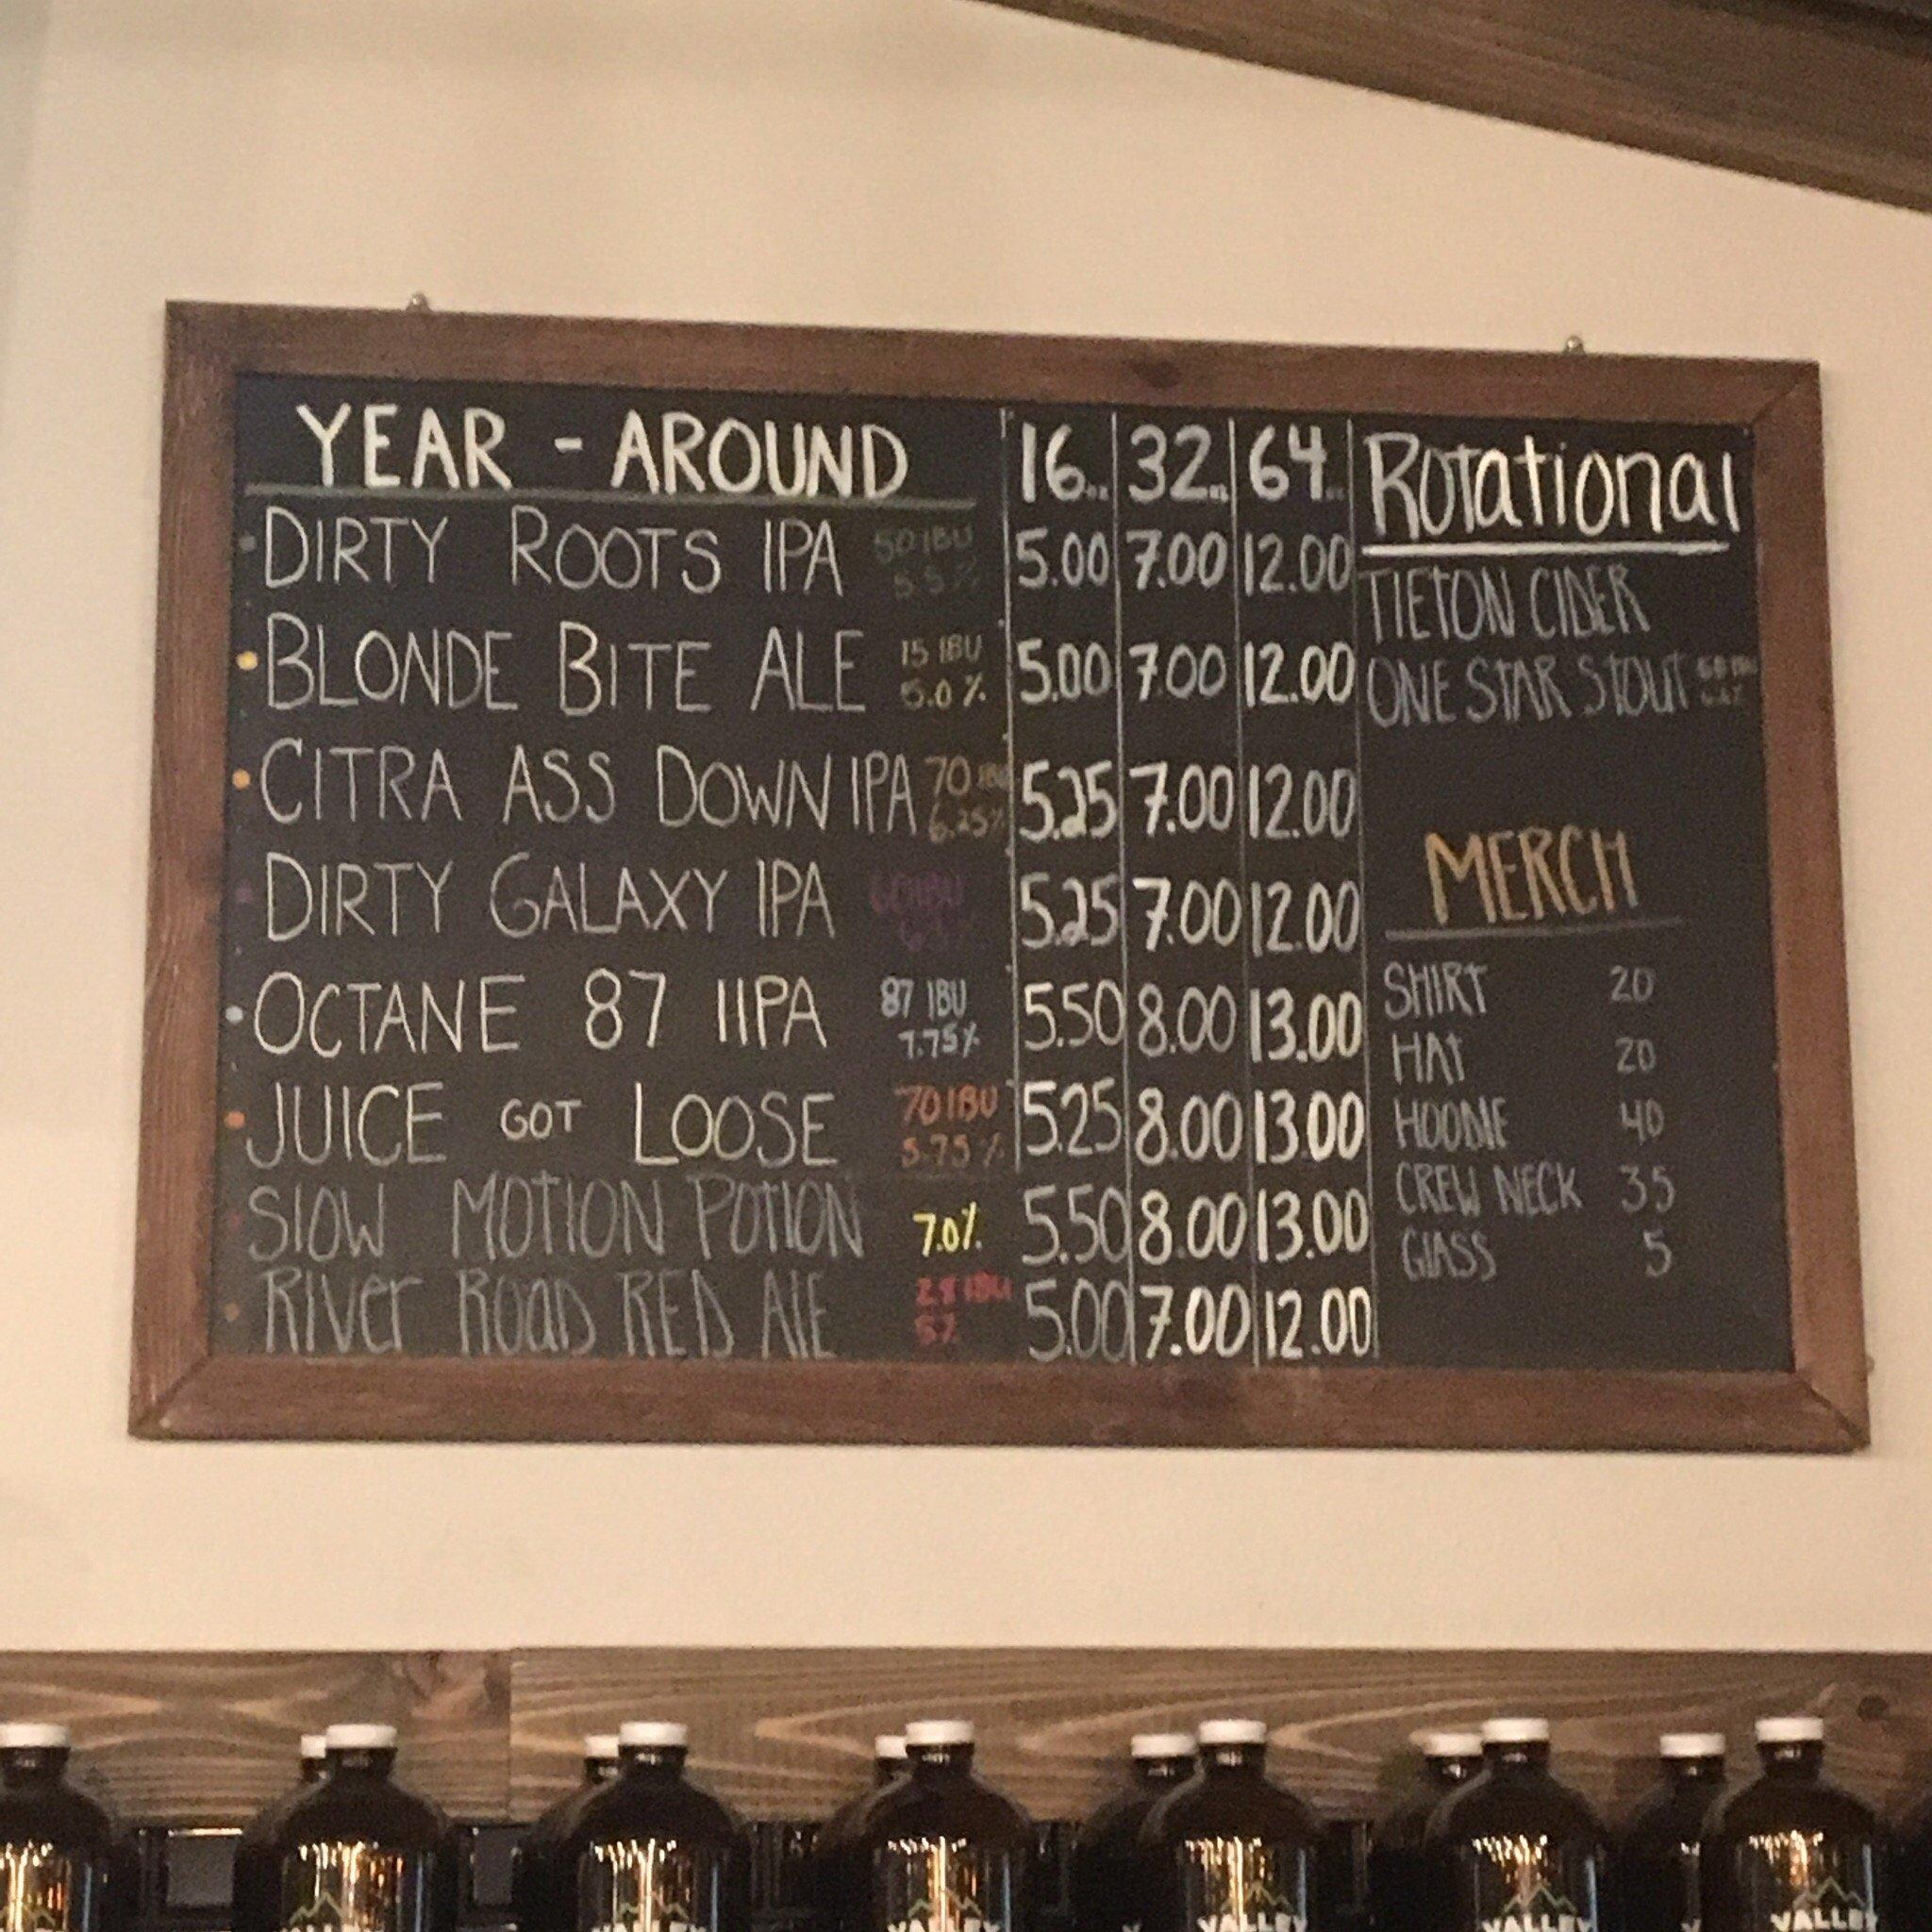 YEAR - AROUND 16 32 64
DIRTY ROOTS IPA 50 IBU 5.00 7.00 12.00
5.5%
BLONDE BITE ALE 15 IBU 5.00 7.00 12.00
5.0%
CITRA ASS DOWN IPA 70 IBU 5.25 7.00 12.00
6.25%
DIRTY GALAXY IPA 5.25 7.00 12.00
OCTANE 87 IIPA 87 IBU 5.50 8.00 13.00
7.75%
JUICE GOT LOOSE 70 IBU 5.25 8.00 13.00
5.75%
SLOW MOTION POTION 7.0% 5.50 8.00 13.00
RIVer ROAD RED AlE 28 IBU 5.00 7.00 12.00
5%
Rotational
TIETON CIDER
ONE STAR STOUT
MERCH
SHIRT 20
HAT 20
HOODIE 40
CREW NECK 35
GlASS 5
VALLEY
VALLEY
VALLEY
VALLEY
VALLEY
VALLEY